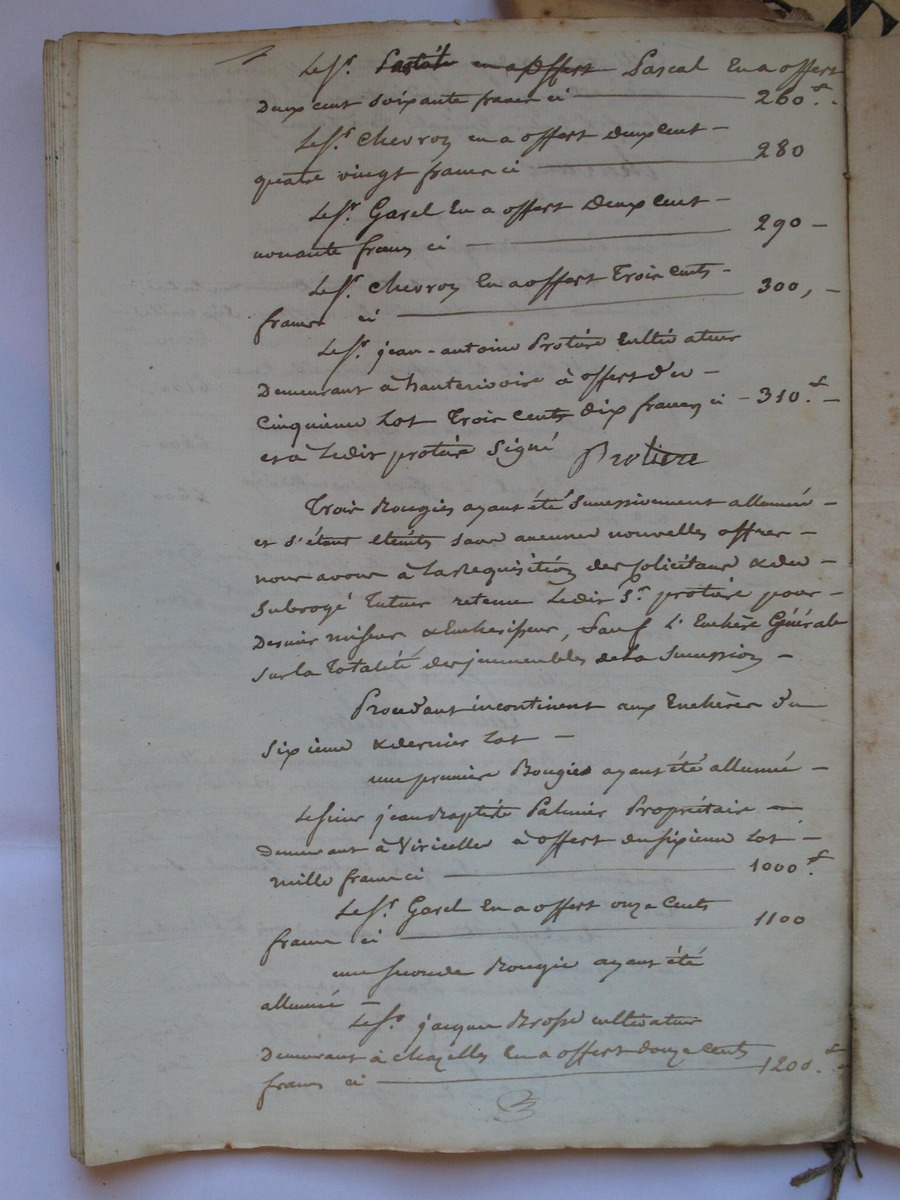 Le Sr. Pascal en a offert
Deux cent soixante francs ci 260 f.
Le Sr chevron en a offert deux cent
quatre vingt francs ci 280
Le Sr. Garel En a offert Deux Cent
nonante francs ci 290
Le Sr. chevron En a offert Trois cents
francs ci 300,
Le Sr. jean-antoine Protiere Cultivateur
Demeurant à hauterivoire à offert du
Cinquieme Lot Trois Cents dix francs ci 310. f
et à Ledit protière Signé Protiere
Trois Bougies ayant été Successivement allumée
et s'étant éteints sans aucune nouvelles offres
nous avons à La Requisition des solicitans & du
Subrogé Tuteur retenu Ledit Sr. protière pour
Dernier miseur & Encherisseur, Sauf L'Enchère Générale
Sur la Totalité des jmmeubles de la Succession
Procédant incontinent aux Enchères du
Sixieme & dernier Lot
une premiere Bougie ayant été allumée
Le Sieur jean Baptiste Palmier Propriétaire
Demeurant à Viricelles à offert du sixieme Lot
mille francs ci 1000 f.
Le Sr Garel En a offert onze Cents
francs ci 1100
une seconde Bougie ayant été
allumée
Le Sr. jacques Brosse cultivateur
Demeurant à chazelles En a offert douze Cents
francs ci 1200. f